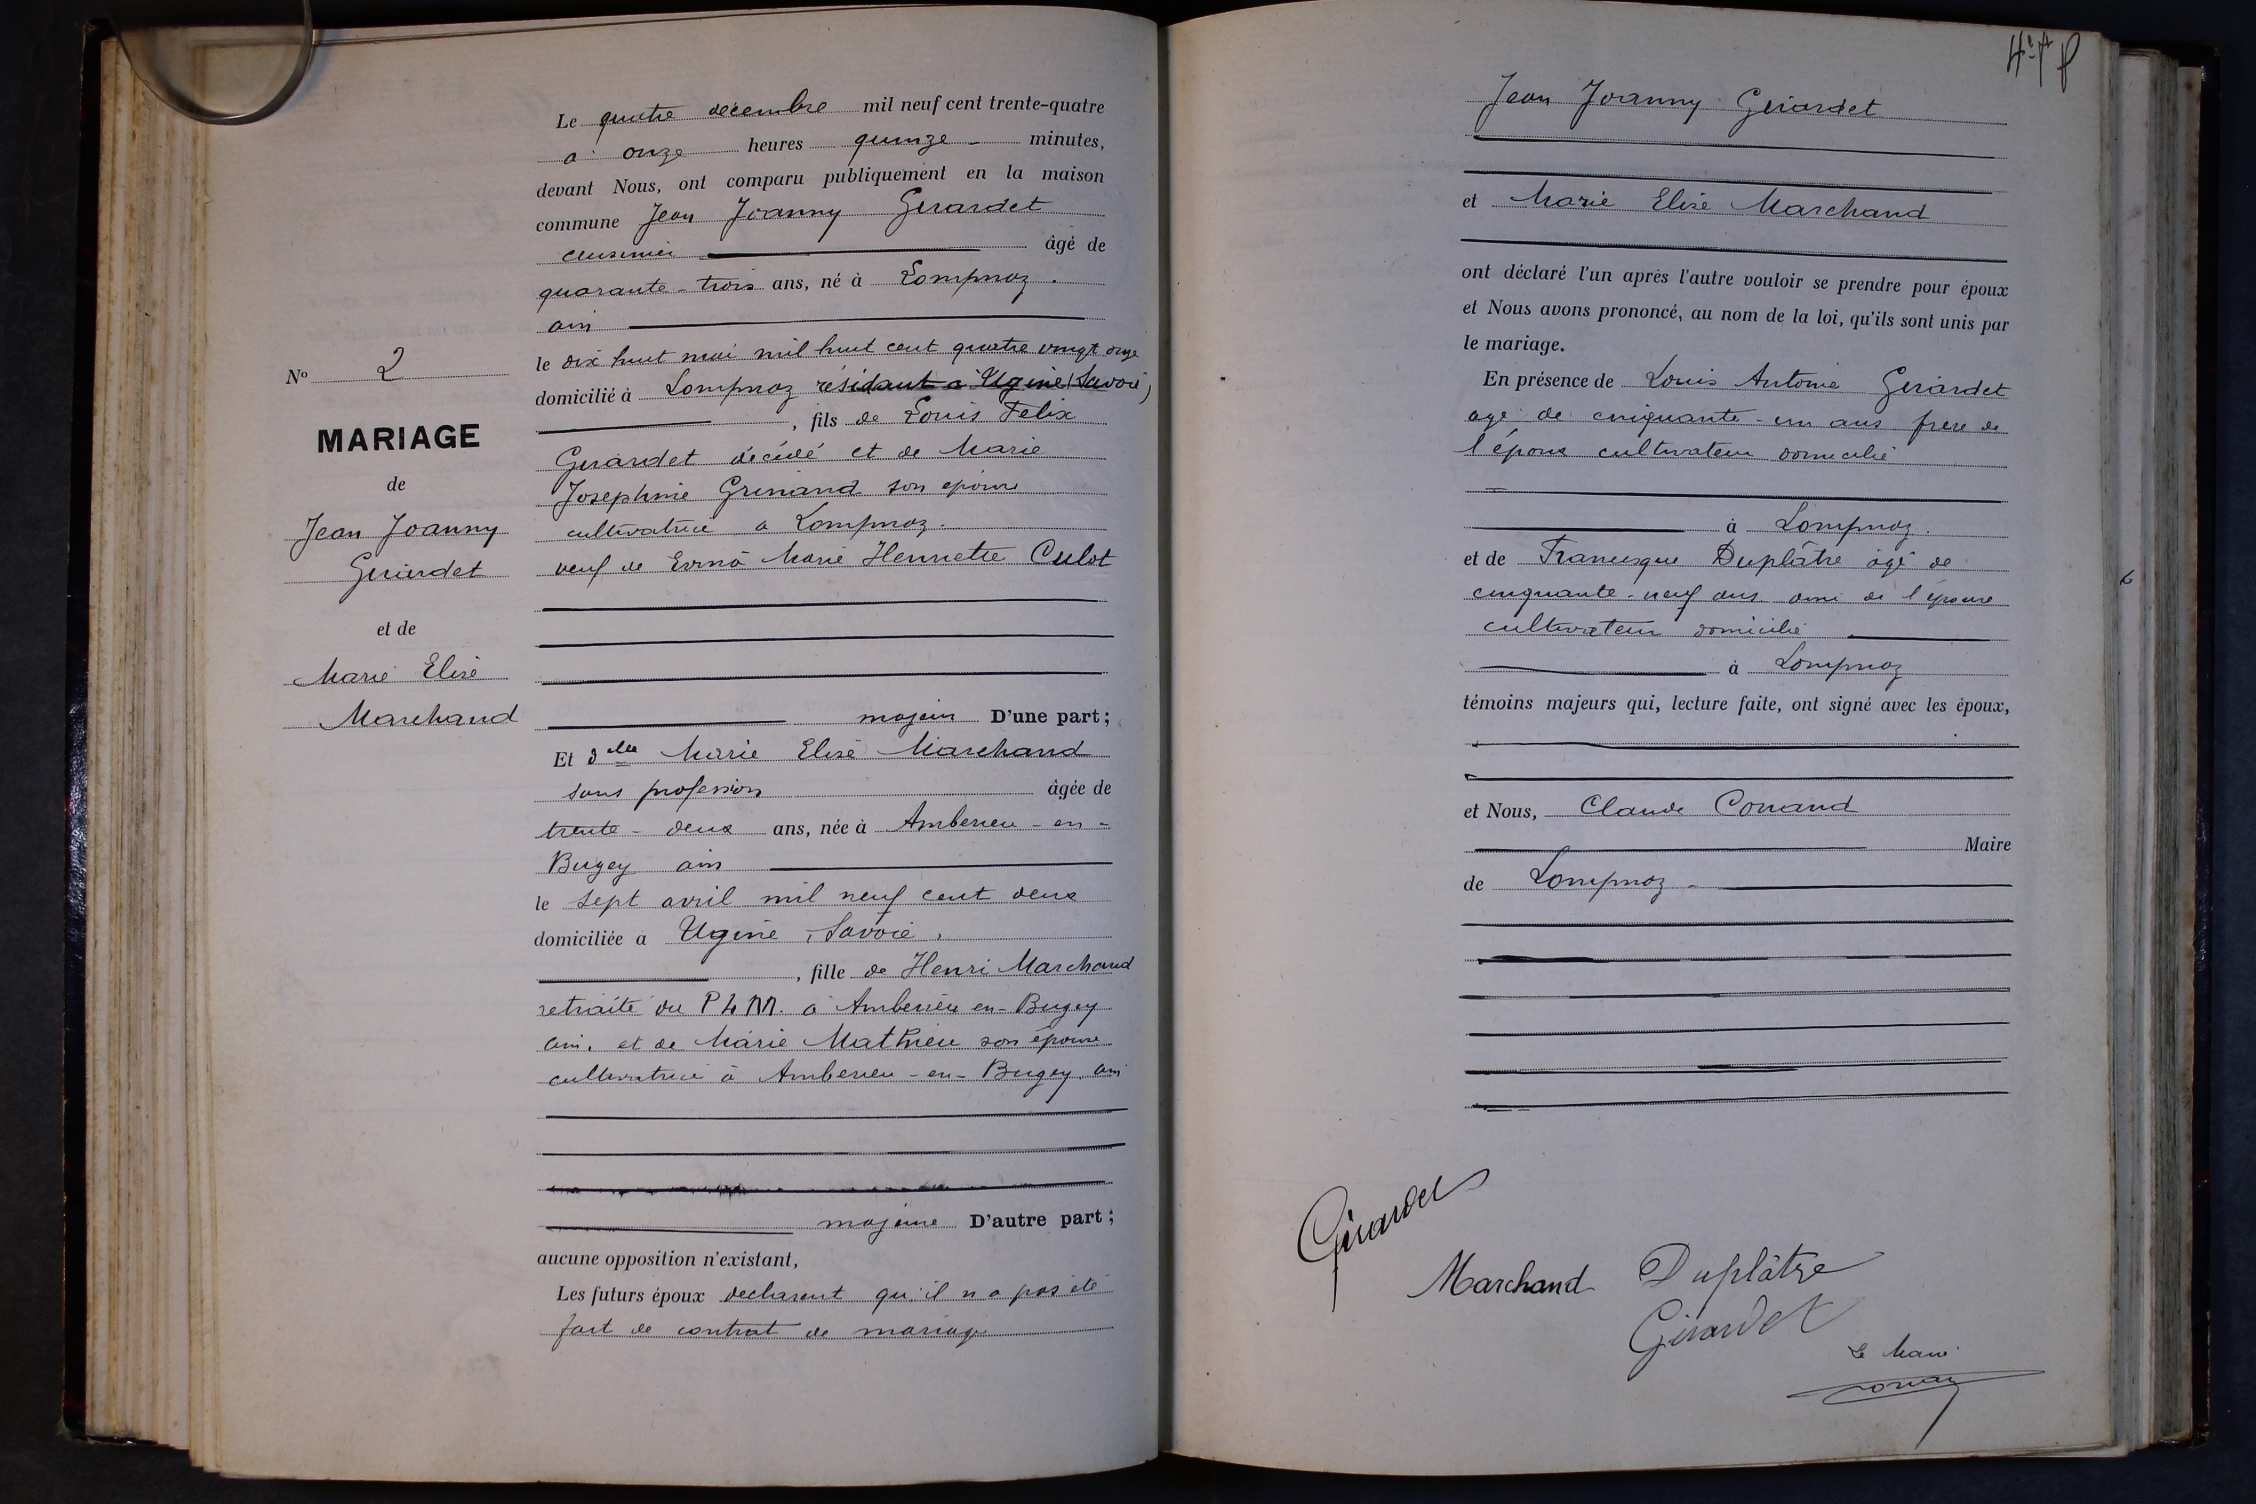 Le quatre décembre mil neuf cent trente-quatre
à onze heures quinze minutes,
devant Nous, ont comparu publiquement en la maison
commune Jean Joanny Girardet
cuisinier âgé de
quarante-trois ans, né à Lompnaz.
ain
le dix huit mai mil huit cent quatre vingt onze
domicilié à Lompnaz résidant à Ugine (Savoie)
, fils de Louis Felix
Girardet décédé et de Marie
Josephine Grinand son épouse
cultivatrice a Lompnaz.
veuf de Erma Marie Henriette Culot
majeur D'une part;
Nº 2
MARIAGE
de
Jean Joanny
Girardet
et de
Marie Elise
Marchand
Et dlle Marie Elise Marchand
sans profession âgée de
trente-deux ans, née à Amberieu-en-
Bugey ain
le sept avril mil neuf cent deux
domiciliée à Ugine, Savoie,
, fille de Henri Marchand
retraité du PLM. à Amberieu en-Bugey
ain. et de Marie Mathieu son épouse
cultivatrice à Amberieu-en-Bugey. ain
majeure D'autre part;
aucune opposition n'existant,
Les futurs époux declarent qu'il n'a pas été
fait de contrat de mariage
Jean Joanny Girardet
et Marie Elise Marchand
ont déclaré l'un après l'autre vouloir se prendre pour époux
et Nous avons prononcé, au nom de la loi, qu'ils sont unis par
le mariage.
En présence de Louis Antoine Girardet
age de cinquante-un ans frère de
l'époux cultivateur domicilié
à Lompnaz.
et de Francisque Duplâtre âgé de
cinquante-neuf ans ami de l'épouse
cultivateur domicilié
à Lompnaz
témoins majeurs qui, lecture faite, ont signé avec les époux,
et Nous, Claude Conand
Maire
de Lompnaz
Girardet
Marchand Duplâtre
Girardet
Le Maire
Conand